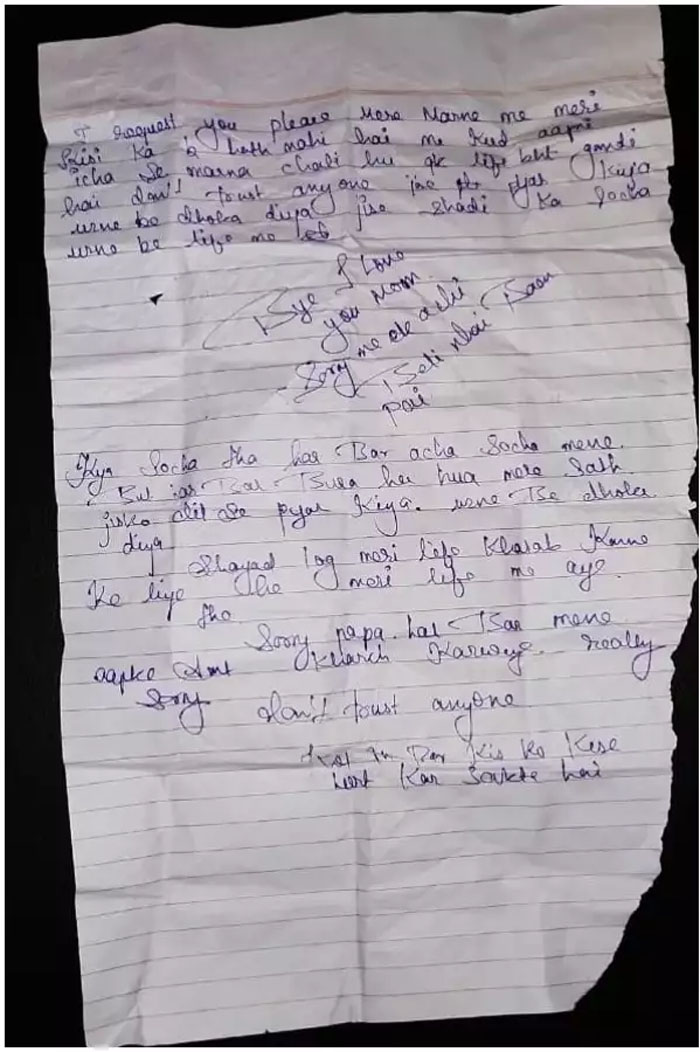 I request you please mere marne me meri
kisi ka b hath nahi hai me kud aapni
icha se marna chali hu qk life bht gandi
hai don't trust anyone jise pyar kiya
usne be dhoka diya jise shadi ka socha
usne be life me
Bye I Love
you Mom
Sorry me ek achi
Beti nhai Baan
pai
Kya socha tha har Bar acha socha mene
But Bar Bura he hua mere sath
jisko dil se pyar kiya. usne Be dhoka
diya
Shayad log meri life kharab karne
ke liye he meri life me aye
tho
Soory papa. har Bar mene
aapke kharch karwaye really
sorry don't trust anyone
kis ko kese
hurt kar sakte hai